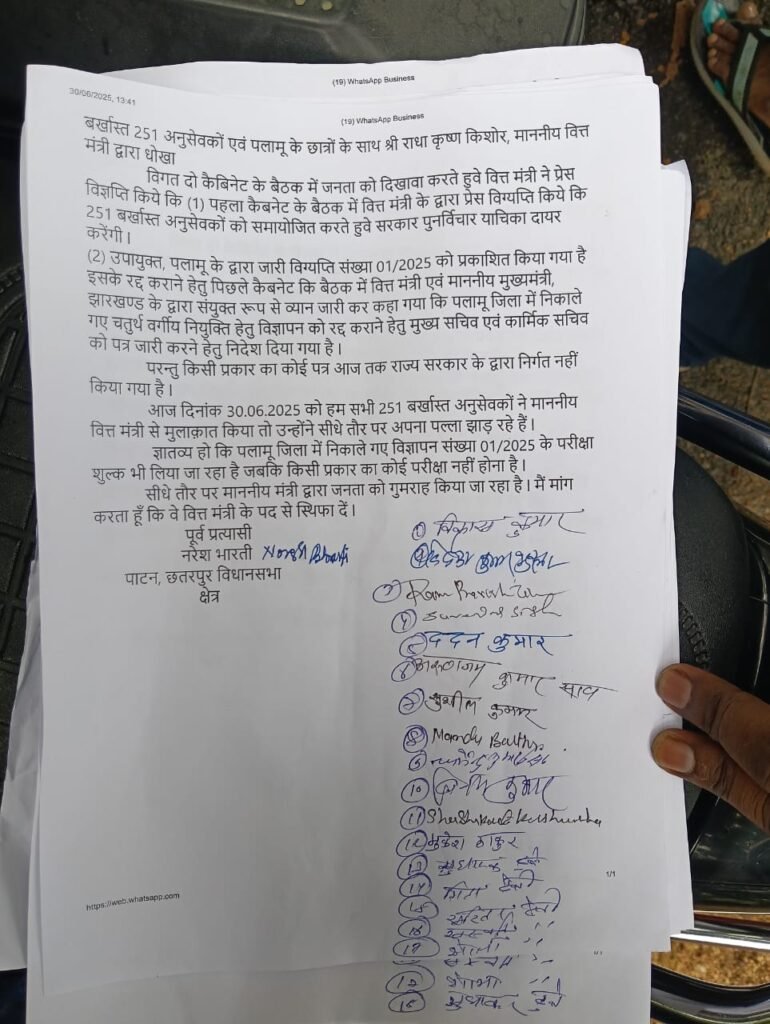 (19) WhatsApp Business
30/06/2025, 13:41
(19) WhatsApp Business
बर्खास्त 251 अनुसेवकों एवं पलामू के छात्रों के साथ श्री राधा कृष्ण किशोर, माननीय वित्त
मंत्री द्वारा धोखा
विगत दो कैबिनेट के बैठक में जनता को दिखावा करते हुवे वित्त मंत्री ने प्रेस
विज्ञप्ति किये कि (1) पहला कैबनेट के बैठक में वित्त मंत्री के द्वारा प्रेस विग्यप्ति किये कि
251 बर्खास्त अनुसेवकों को समायोजित करते हुवे सरकार पुनर्विचार याचिका दायर
करेंगी।
(2) उपायुक्त, पलामू के द्वारा जारी विग्यप्ति संख्या 01/2025 को प्रकाशित किया गया है
इसके रद्द कराने हेतु पिछले कैबनेट कि बैठक में वित्त मंत्री एवं माननीय मुख्यमंत्री,
झारखण्ड के द्वारा संयुक्त रूप से व्यान जारी कर कहा गया कि पलामू जिला में निकाले
गए चतुर्थ वर्गीय नियुक्ति हेतु विज्ञापन को रद्द कराने हेतु मुख्य सचिव एवं कार्मिक सचिव
को पत्र जारी करने हेतु निदेश दिया गया है।
परन्तु किसी प्रकार का कोई पत्र आज तक राज्य सरकार के द्वारा निर्गत नहीं
किया गया है।
आज दिनांक 30.06.2025 को हम सभी 251 बर्खास्त अनुसेवकों ने माननीय
वित्त मंत्री से मुलाक़ात किया तो उन्होंने सीधे तौर पर अपना पल्ला झाड़ रहे हैं।
ज्ञातव्य हो कि पलामू जिला में निकाले गए विज्ञापन संख्या 01/2025 के परीक्षा
शुल्क भी लिया जा रहा है जबकि किसी प्रकार का कोई परीक्षा नहीं होना है।
सीधे तौर पर माननीय मंत्री द्वारा जनता को गुमराह किया जा रहा है। मैं मांग
करता हूँ कि वे वित्त मंत्री के पद से स्थिफा दें।
पूर्व प्रत्यासी
नरेश भारती Naresh Bharti
पाटन, छतरपुर विधानसभा
क्षेत्र
① विकास कुमार
② कुमार
③ Ram
④ Surendra Singh
⑤ ददन कुमार
⑥ कुमार साव
⑦ सुशील कुमार
⑧
⑨
⑩ कुमार
⑪ Kushwaha
⑫ मुकेश ठाकुर
⑬
⑭ देवी
⑮ देवी
⑯ ''
⑰ ''
''
''
⑱ सुधाकर दुबे
1/1
https://web.whatsapp.com
1/1